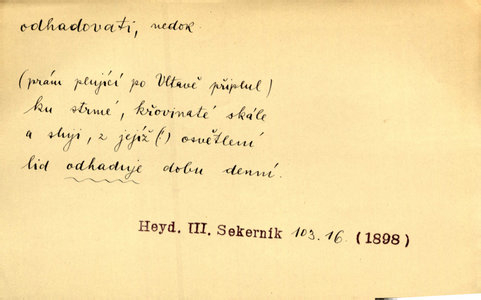 odhadovati, nedok.
(prám plující po Vltavě připlul)
ku strmé, křovinaté skále
a sluji, z jejíž (!) osvětlení
lid odhaduje dobu denní.
Heyd. III. Sekerník 103.16. (1898)